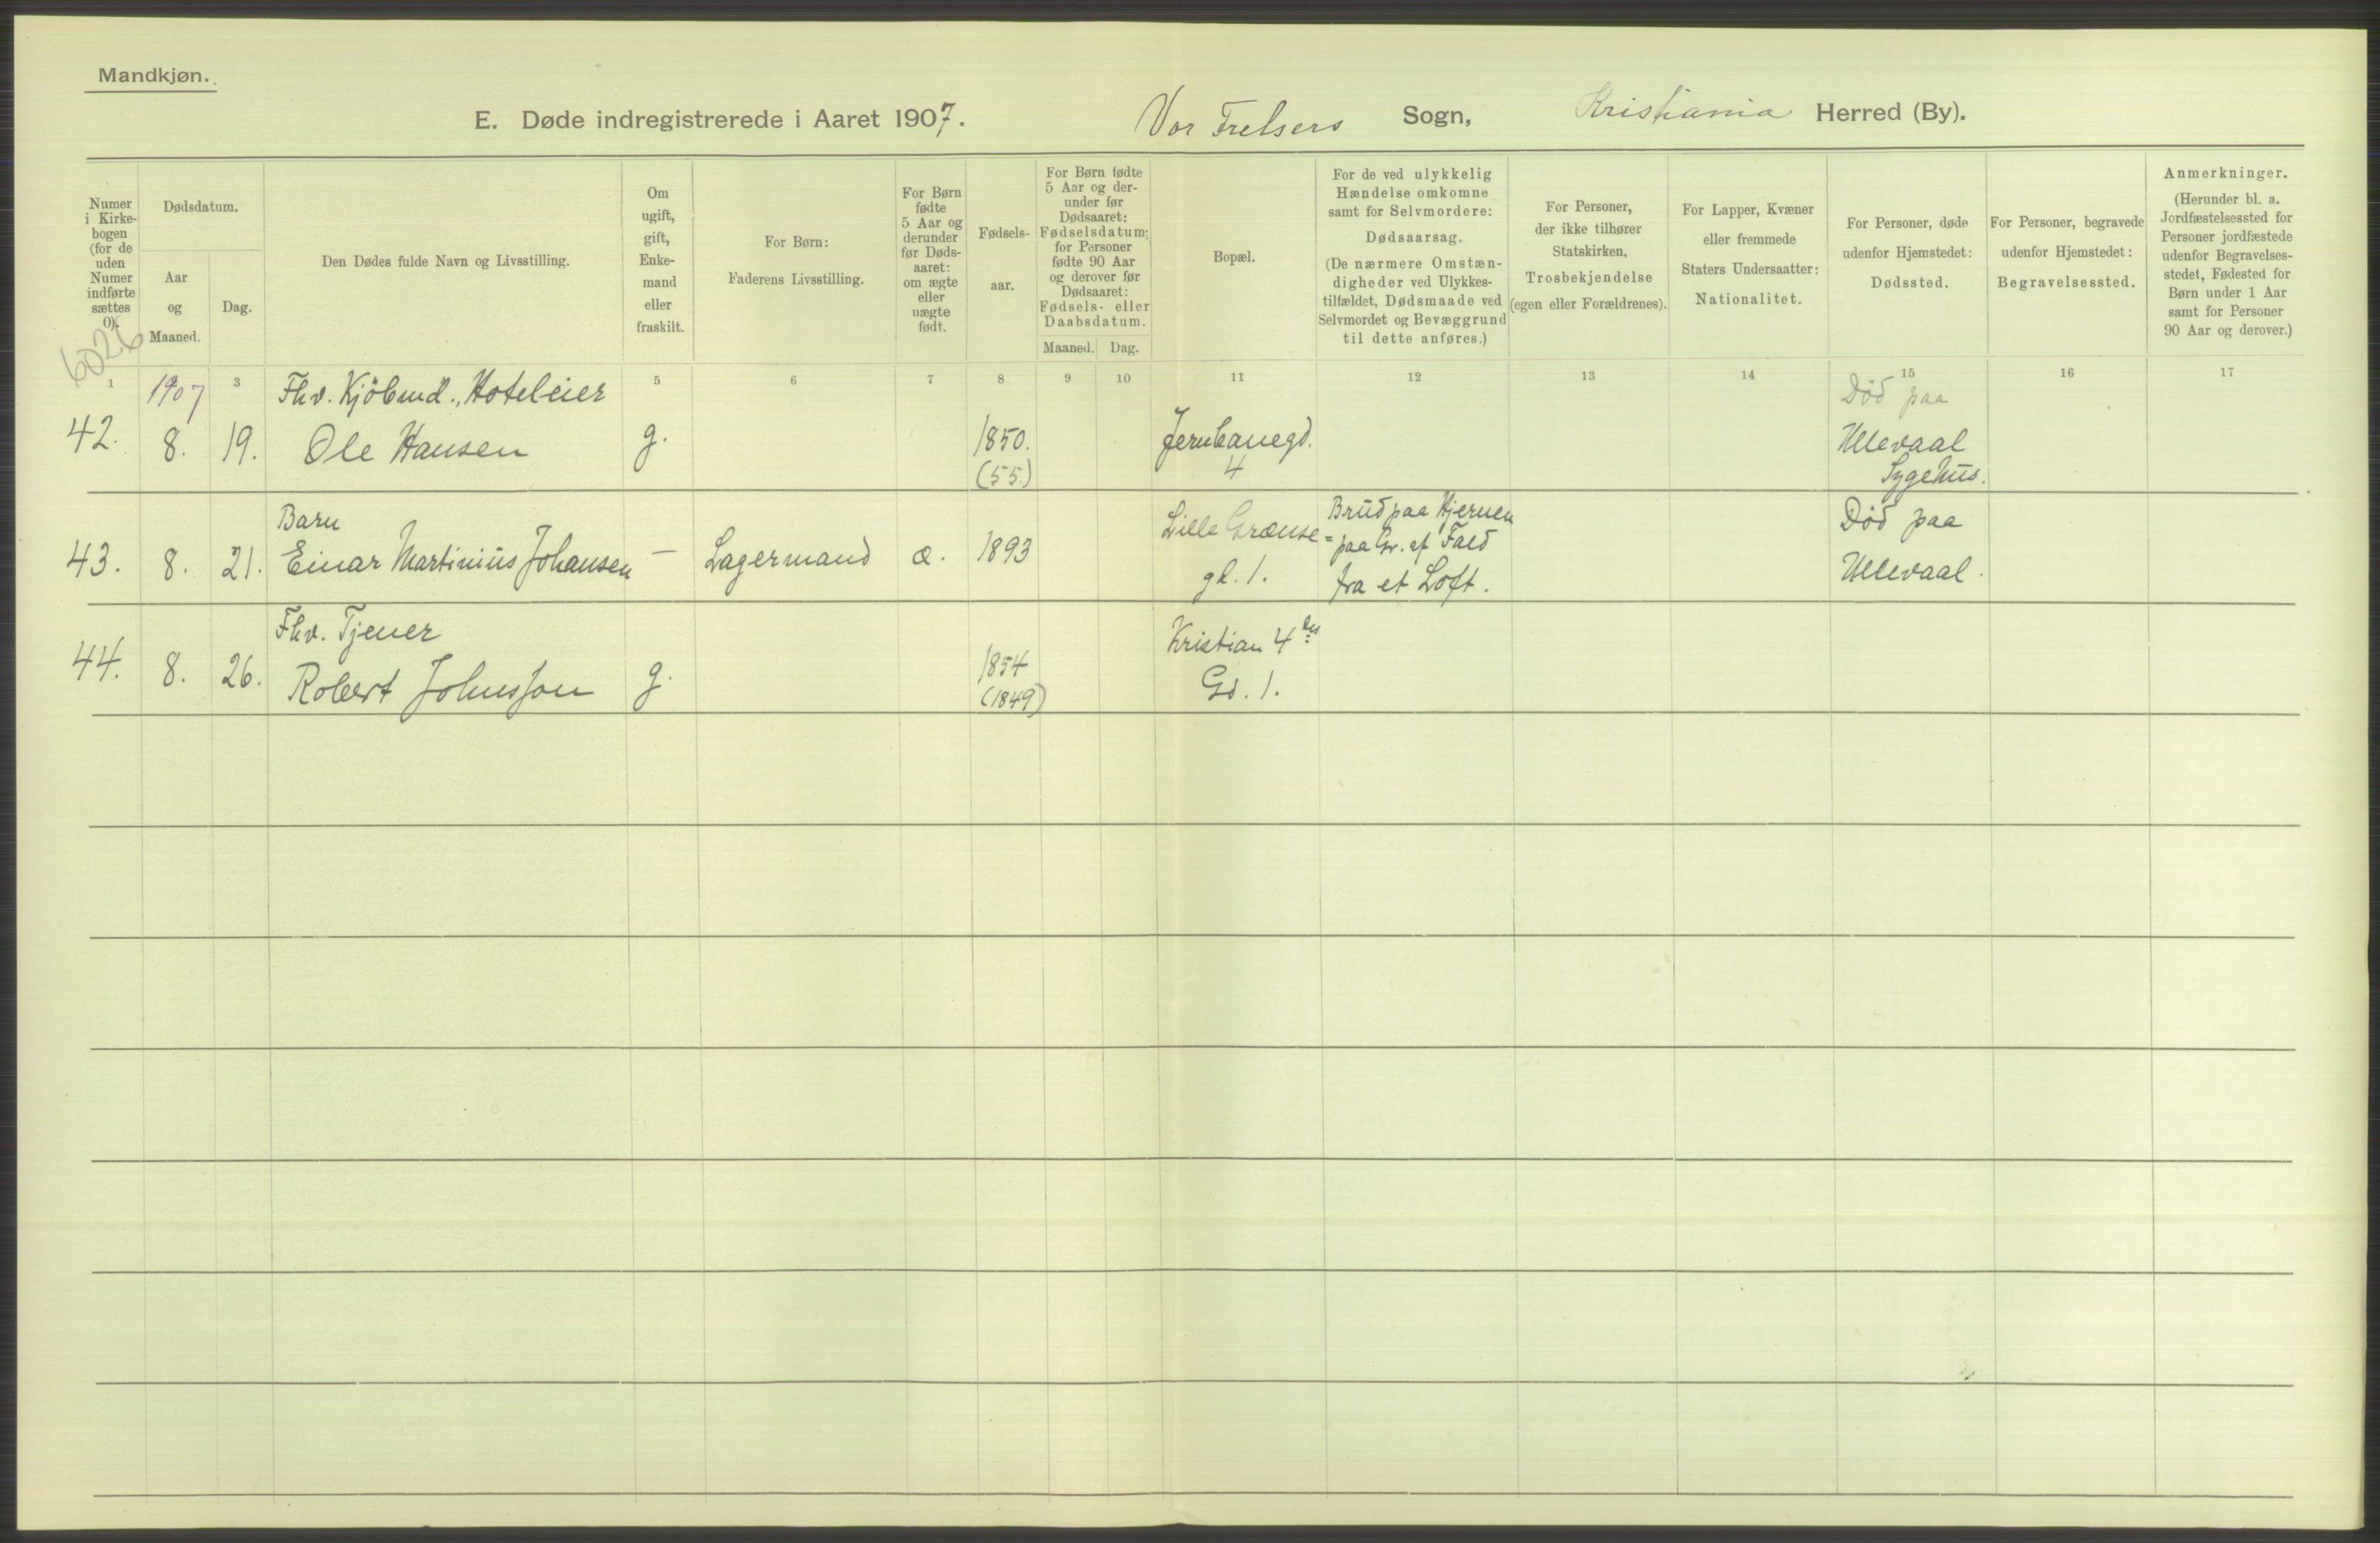 Mandkjøn.
E. Døde indregistrerede i Aaret 1907. Vor Frelsers Sogn, Kristiania Herred (By).
Numer i Kirkebogen (for de uden Numer indførte sættes 0).
Dødsdatum.
Aar og Maaned.
Dag.
Den Dødes fulde Navn og Livsstilling.
Om ugift, gift, Enkemand eller fraskilt.
For Børn: Faderens Livsstilling.
For Børn fødte 5 Aar og derunder før Dødsaaret: om ægte eller uægte født.
Fødselsaar.
For Børn fødte 5 Aar og derunder før Dødsaaret: Fødselsdatum; for Personer fødte 90 Aar og derover før Dødsaaret: Fødsels- eller Daabsdatum.
Maaned. Dag.
Bopæl.
For de ved ulykkelig Hændelse omkomne samt for Selvmordere: Dødsaarsag. (De nærmere Omstændigheder ved Ulykkestilfældet, Dødsmaade ved Selvmordet og Bevæggrund til dette anføres.)
For Personer, der ikke tilhører Statskirken, Trosbekjendelse (egen eller Forældrenes).
For Lapper, Kvæner eller fremmede Staters Undersaatter: Nationalitet.
For Personer, døde udenfor Hjemstedet: Dødssted.
For Personer, begravede udenfor Hjemstedet: Begravelsessted.
Anmerkninger. (Herunder bl. a. Jordfæstelsessted for Personer jordfæstede udenfor Begravelsesstedet, Fødested for Børn under 1 Aar samt for Personer 90 Aar og derover.)
6026
1 3 5 6 7 8 9 10 11 12 13 14 15 16 17
1907
Fhv. Kjöbmd., Hoteleier
Død paa
42. 8. 19. Ole Hansen g. 1850. Jernbanegd. Ullevaal
(55) 4 Sygehus.
Barn Lille Grænse= Brud paa Hjernen Død paa
43. 8. 21. Einar Martinius Johansen – Lagermand æ. 1893 paa Gr. af Fald
gd. 1. fra et Loft. Ullevaal.
Fhv. Tjener Kristian 4des
44. 8. 26. Robert Johnsson g. 1854
(1849) Gd. 1.